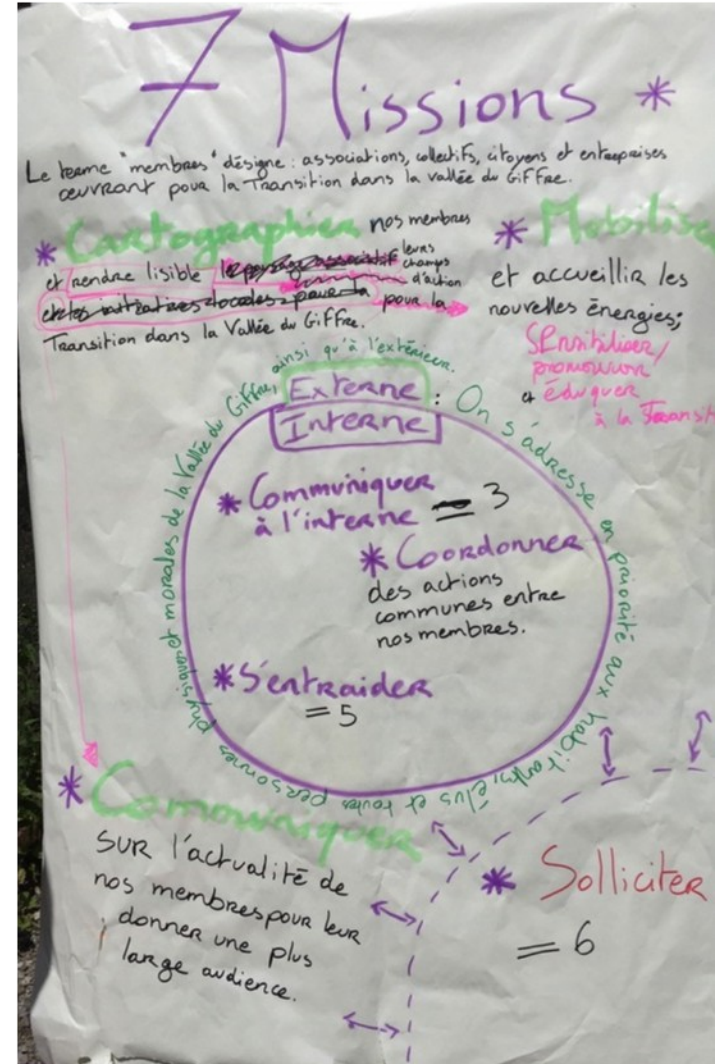 7 Missions *
Le terme "membres" désigne : associations, collectifs, citoyens et entreprises
œuvrant pour la Transition dans la vallée du Giffre.
* Cartographier nos membres
et rendre lisible le paysage associatif leurs champs
d'action
et les initiatives locales pour la pour la
Transition dans la Vallée du Giffre.
* Mobilise
et accueillir les
nouvelles énergies;
Sensibiliser/
promouvoir
et éduquer
à la Transit
Externe : On s'adresse en priorité aux habitants, élus et toutes personnes physiques et morales de la Vallée du Giffre, ainsi qu'à l'extérieur.
Interne
* Communiquer
à l'interne = 3
* Coordonner
des actions
communes entre
nos membres.
* S'entraider
= 5
* Communiquer
sur l'actualité de
nos membres pour leur
donner une plus
large audience.
* Solliciter
= 6